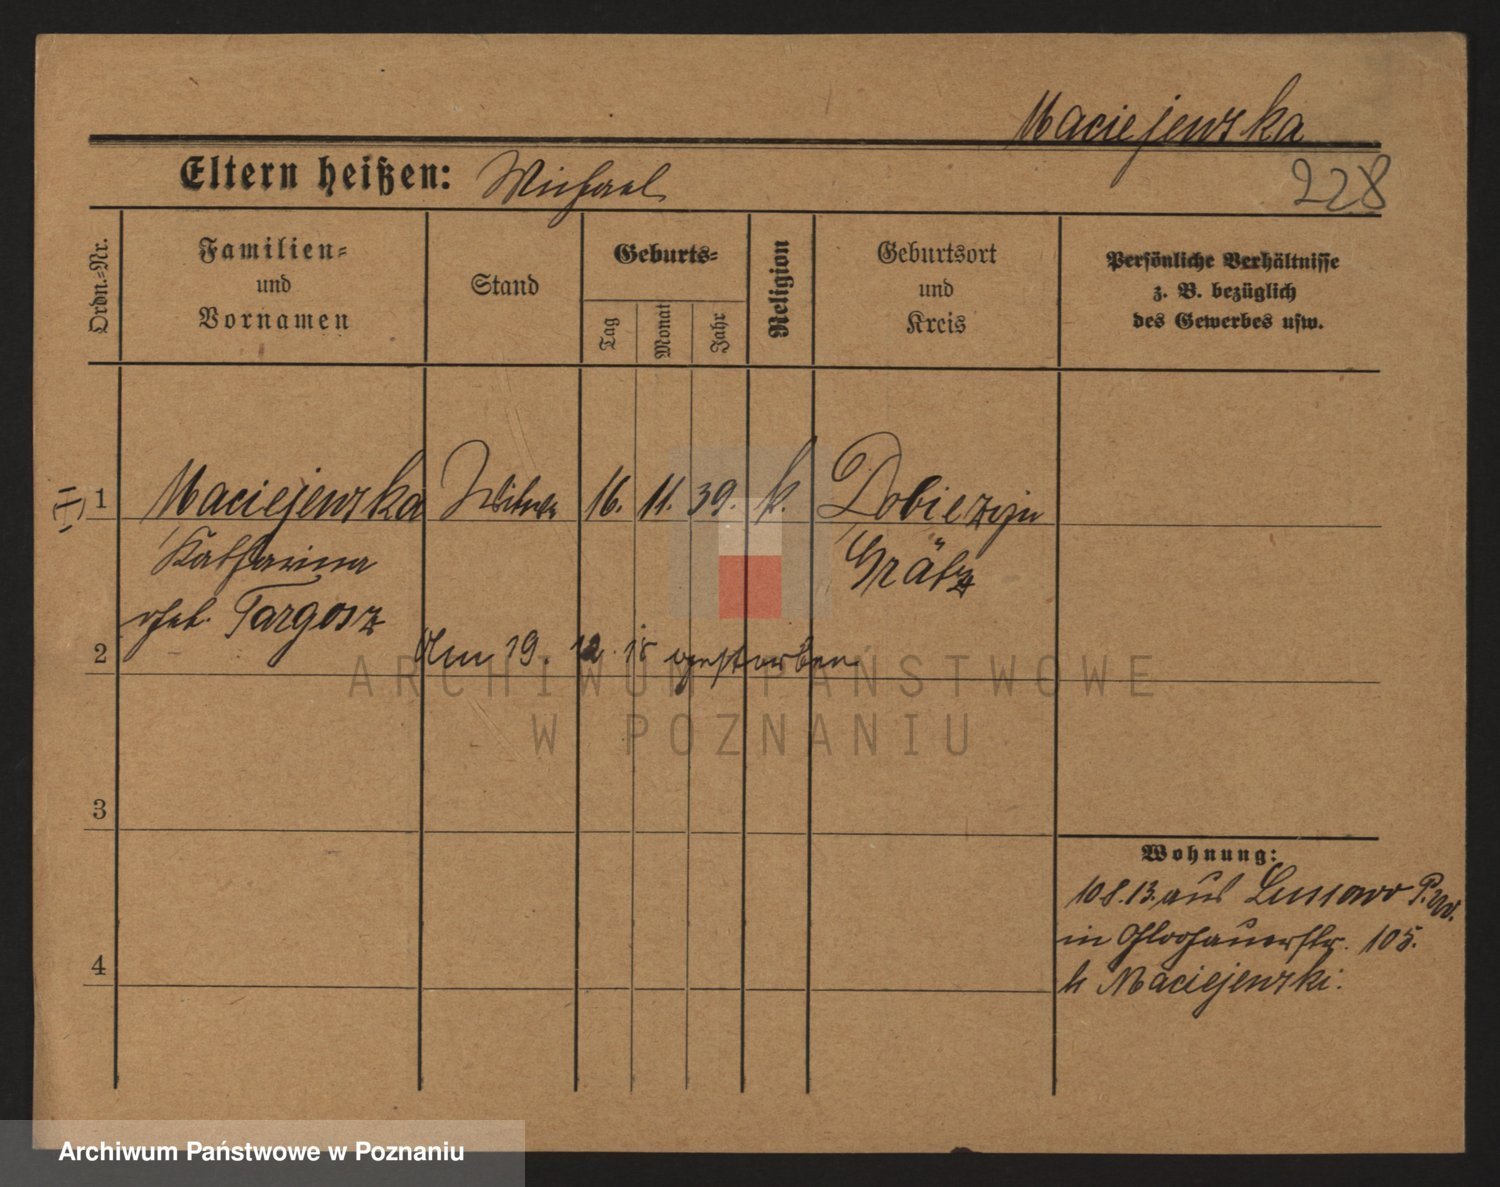 Maciejewska
228
Eltern heißen: Michael
Ordn.-Nr.
Familien-
und
Vornamen
Stand
Geburts-
Tag
Monat
Jahr
Religion
Geburtsort
und
Kreis
Persönliche Verhältnisse
z. B. bezüglich
des Gewerbes usw.
1 Maciejewska Witwe 16. 11. 39. k. Dobiezyn
Katharina Grätz
geb. Targosz
2 Am 19. 12. 15 gestorben
3
4
Wohnung:
10.8.13. aus Lussowo P.W.
in Glogauerstr. 105.
b Maciejewski.
ARCHIWUM PAŃSTWOWE
W POZNANIU
Archiwum Państwowe w Poznaniu